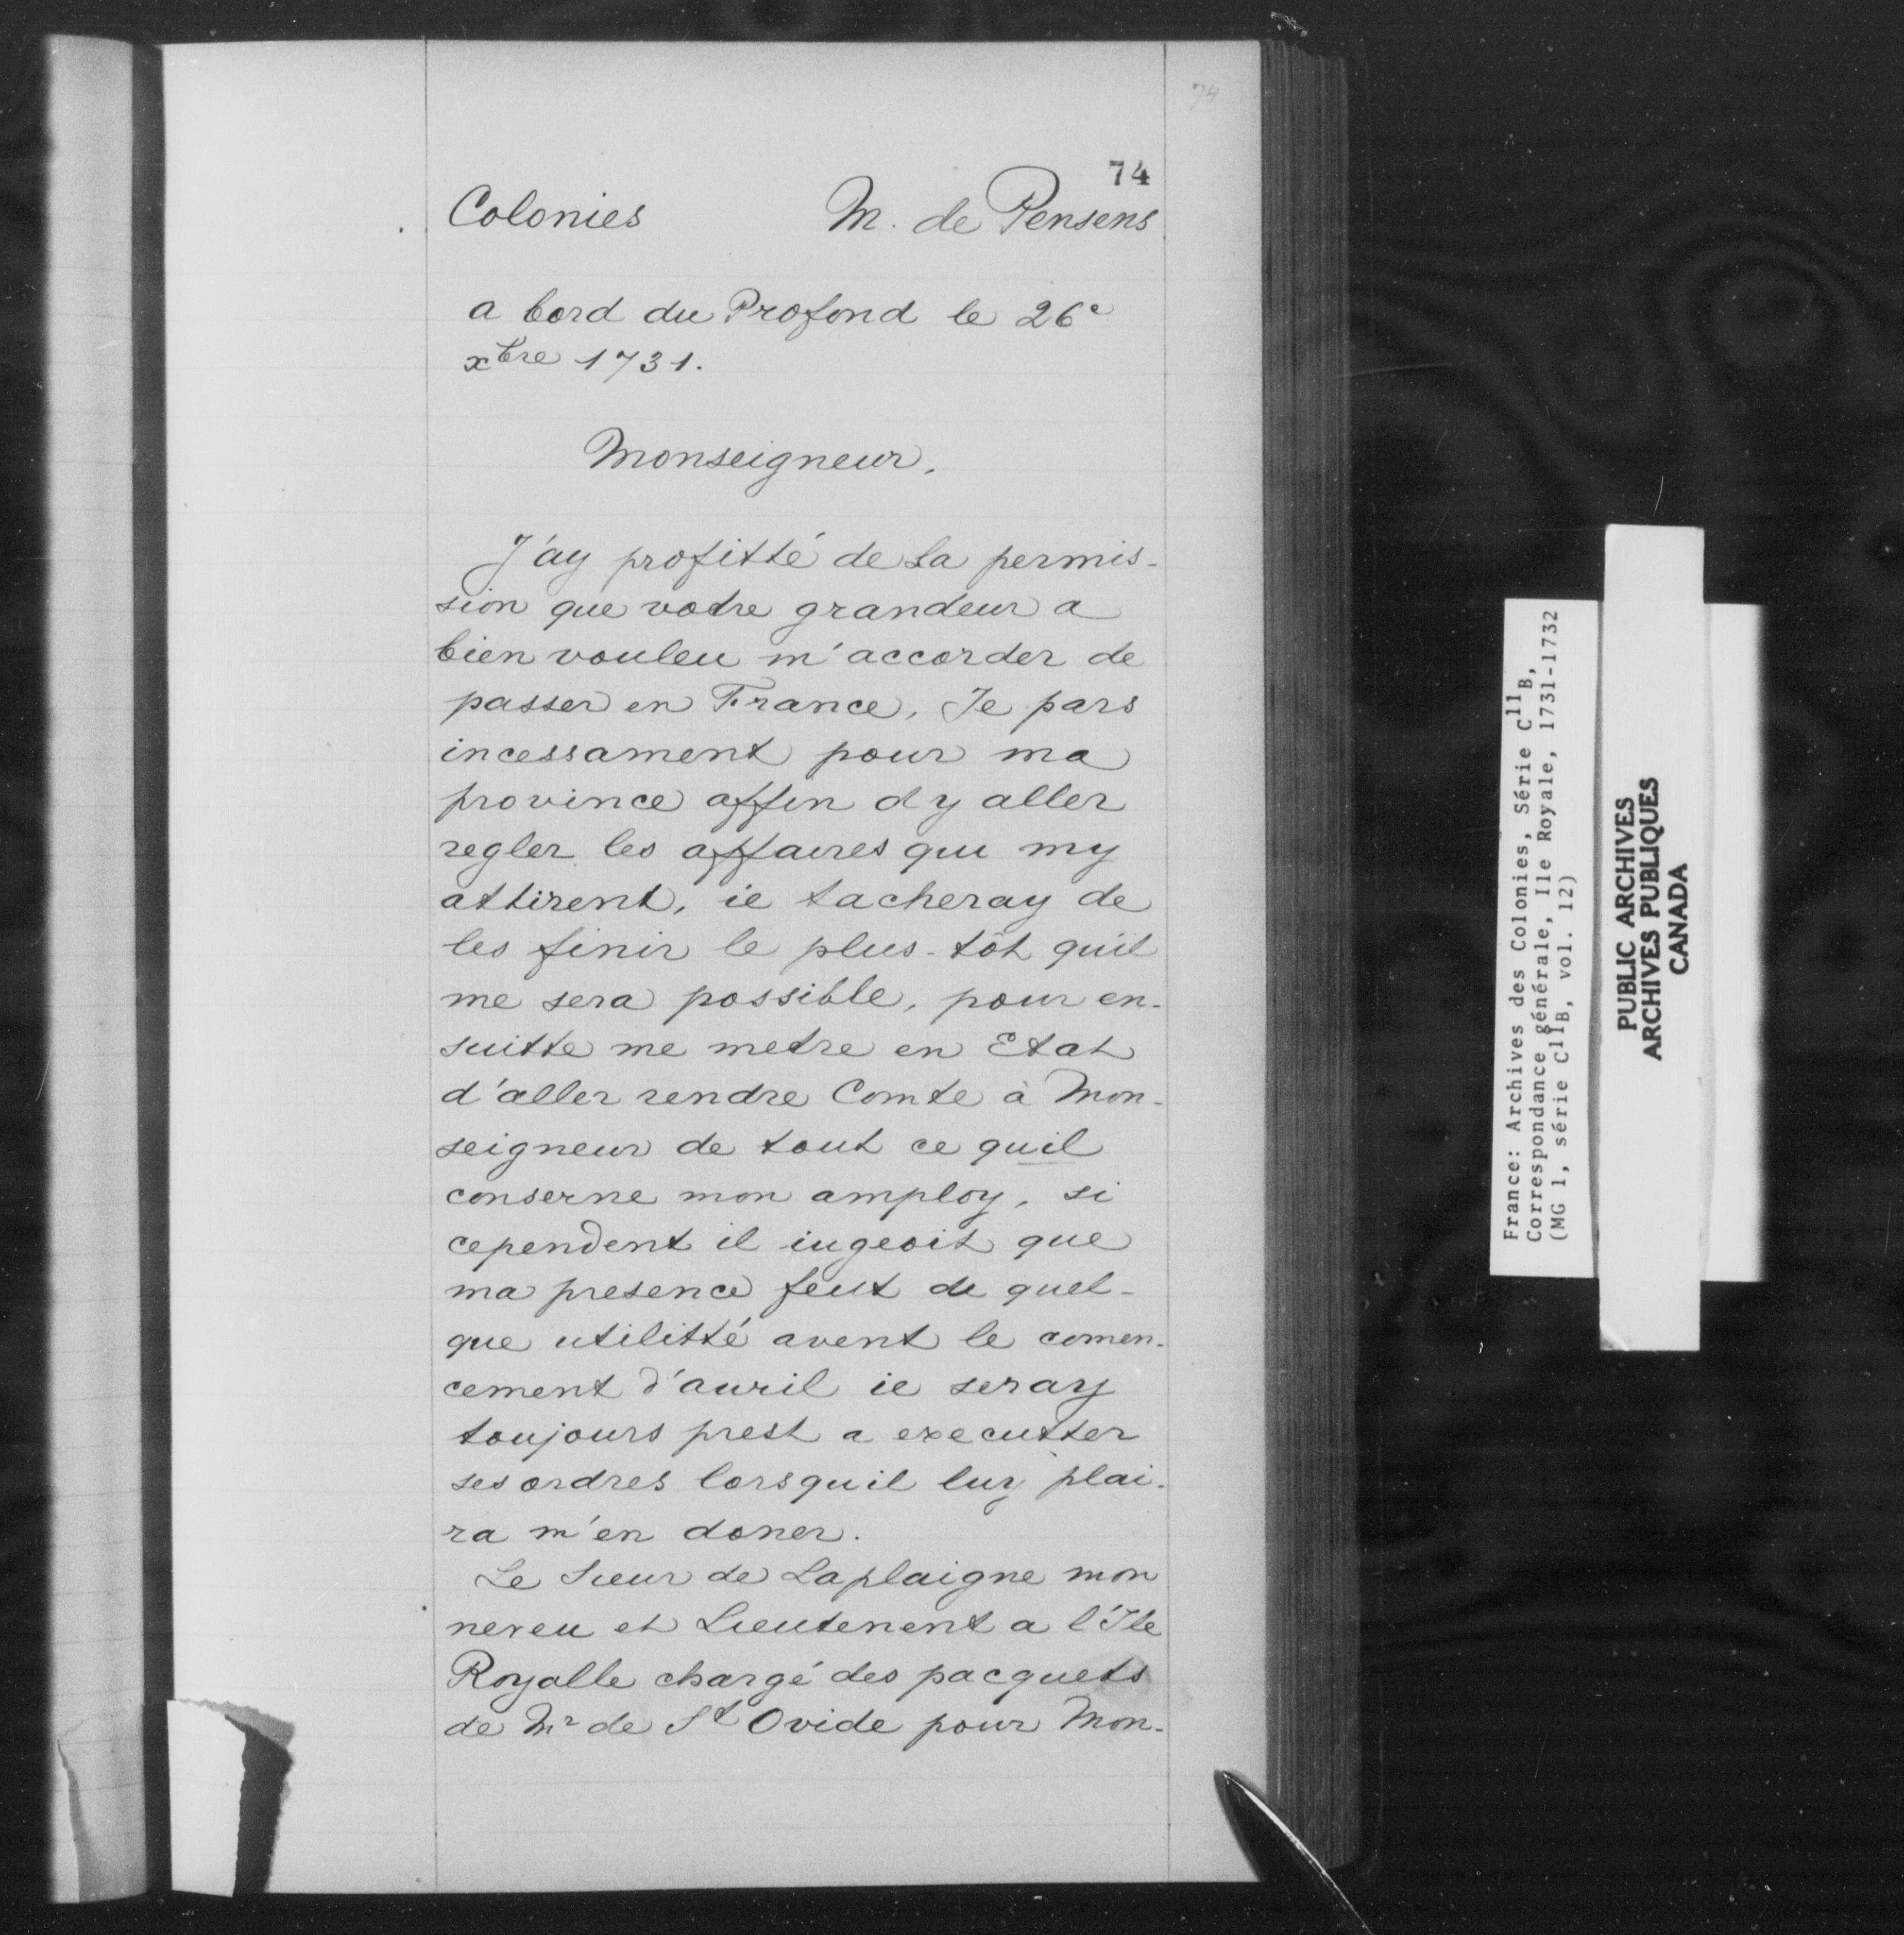 74
74
Colonies M. de Pensens
a bord du Profond le 26e
xbre 1731.
Monseigneur,
J'ay profitté de La permis-
sion que votre grandeur a
bien vouleu m'accorder de
passer en France, Je pars
incessament pour ma
province affin d y aller
regler les affaires qui my
attirent, ie tacheray de
les finir le plus-tôt qu'il
me sera possible, pour en-
suitte me metre en Etat
d'aller rendre Comte à Mon-
seigneur de tout ce quil
conserne mon amploy, si
cependent il iugeoit que
ma presence feut de quel-
que utilitté avent le comen-
cement d'auril ie seray
toujours prest a executter
ses ordres lorsquil luy plai-
ra m'en doner.
Le Sieur de Laplaigne mon
neveu et Lieutenent a l'Ile
Royalle chargé des pacquets
de Mr de St Ovide pour Mon-
France: Archives des Colonies, Série C11B,
Correspondance générale, Ile Royale, 1731-1732
(MG 1, série C11B, vol. 12)
PUBLIC ARCHIVES
ARCHIVES PUBLIQUES
CANADA